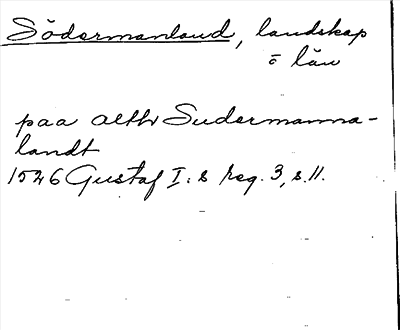 Södermanland, landskap
o län
paa altt Sudermanna-
landt
1526 Gustaf I:s reg. 3, s. 11.